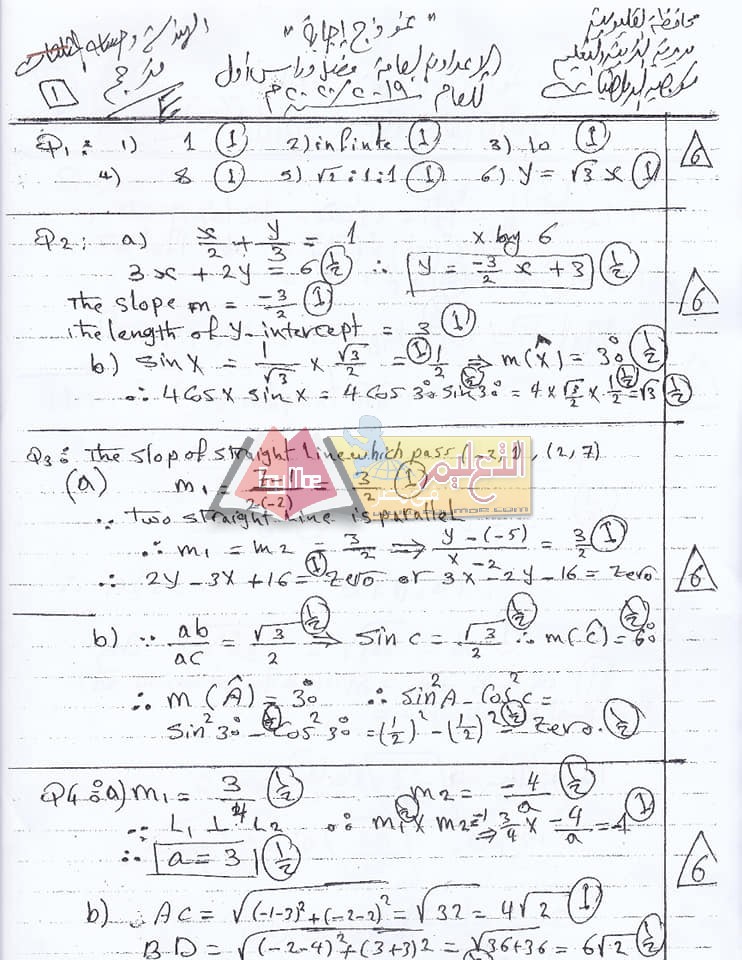 محافظة القليوبية
مديرية التربية والتعليم
"نموذج إجابة"
الإعدادية العامة فصل دراسى أول
للعام ٢٠١٩/٢٠٢٠م
الهندسة وحساب المثلثات
مترجم
1
Q1: 1) 1 (1) 2) infinte (1) 3) 10 (1)
4) 8 (1) 5) √2:1:1 (1) 6) y = √3 x (1)
6
Q2: a) x/2 + y/3 = 1 x by 6
3x + 2y = 6 (1/2) ∴ y = -3/2 x + 3 (1/2)
The slope m = -3/2 (1)
the length of y-intercept = 3 (1)
6
b) sin X = 1/√3 × √3/2 = 1/2 (1) ⇒ m(X̂) = 30° (1/2)
∴ 4 cos x sin x = 4 cos 30° sin 30° (1/2) = 4 × √3/2 × 1/2 (1/2) = √3 (1/2)
Q3: The slop of straight line which pass (-2,1), (2,7)
(a) m1 = 7-1/2-(-2) = 3/2 (1)
∵ two straight line is parallel
∴ m1 = m2 = 3/2 ⇒ y-(-5)/x-2 = 3/2 (1)
∴ 2y - 3x + 16 = zero (1) or 3x - 2y - 16 = zero
6
b) ∵ ab/ac = √3/2 (1/2) ⇒ sin c = √3/2 (1/2) ∴ m(ĉ) = 60 (1/2)
∴ m(Â) = 30° ∴ sin² A - cos² c =
sin² 30° (1/2) - cos² 30° = (1/2)² - (1/2)² (1/2) = zero. (1/2)
Q4: a) m1 = 3/4 (1/2) m2 = -4/a (1/2)
∵ L1 ⊥ L2 ∴ m1 × m2 = -1 (1/2) ⇒ 3/4 × -4/a = -1 (1)
∴ a = 3 (1/2)
6
b) AC = √(-1-3)² + (-2-2)² = √32 = 4√2 (1)
BD = √(-2-4)² + (3+3)2 = √36+36 = 6√2 (1/2)
التعليم